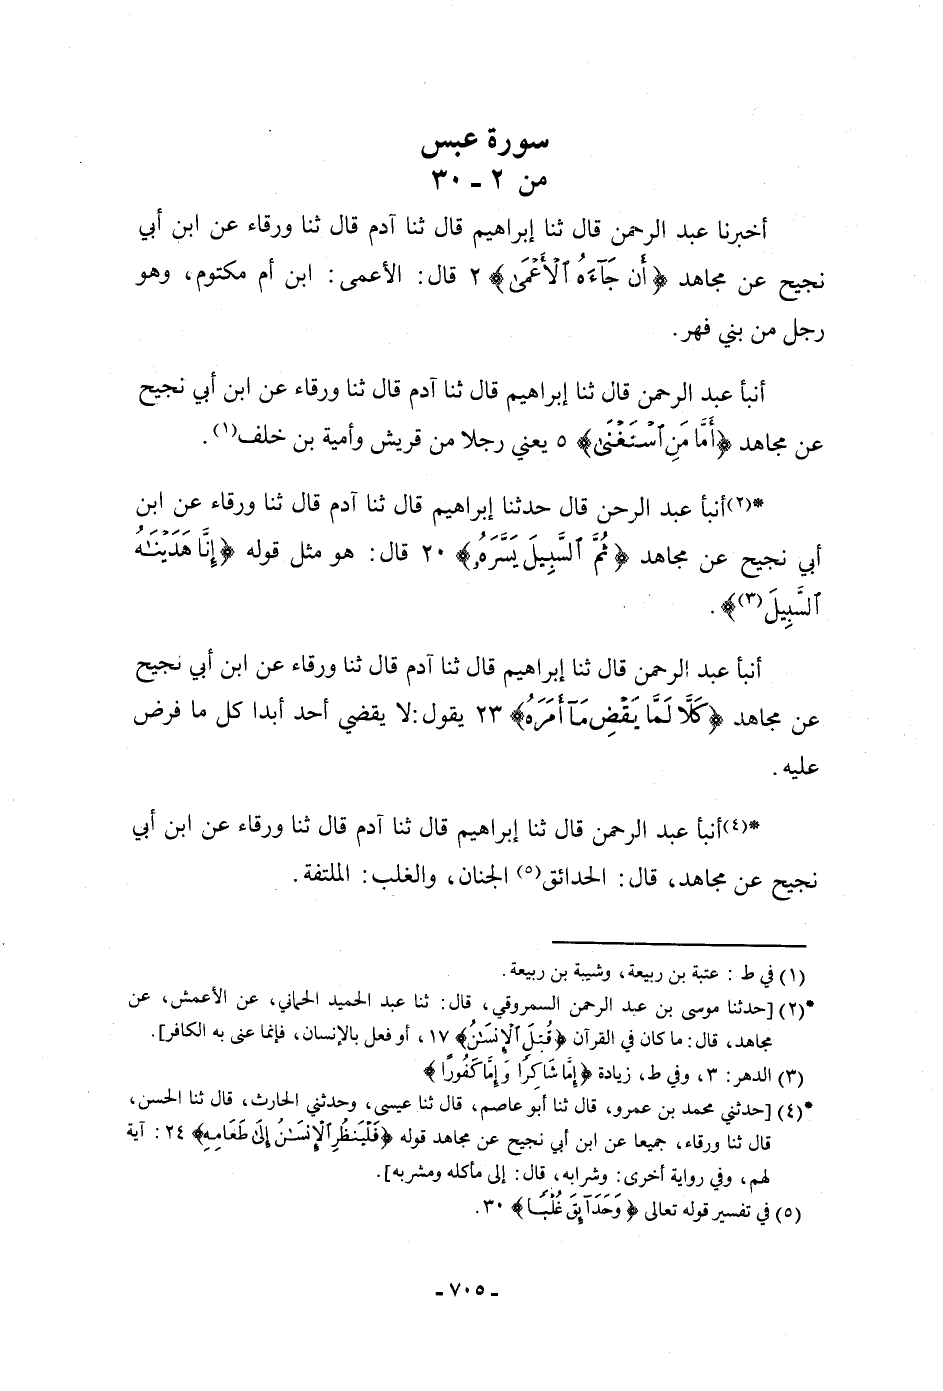 سورة عبس
من ٢ ـ ٣٠
أخبرنا عبد الرحمن قال ثنا إبراهيم قال ثنا آدم قال ثنا ورقاء عن ابن أبي
نجيح عن مجاهد ﴿أَن جَآءَهُ ٱلْأَعْمَىٰ﴾ ٢ قال: الأعمى: ابن أم مكتوم، وهو
رجل من بني فهر.
أنبأ عبد الرحمن قال ثنا إبراهيم قال ثنا آدم قال ثنا ورقاء عن ابن أبي نجيح
عن مجاهد ﴿أَمَّا مَنِ ٱسْتَغْنَىٰ﴾ ٥ يعني رجلا من قريش وأمية بن خلف(١).
*(٢)أنبأ عبد الرحن قال حدثنا إبراهيم قال ثنا آدم قال ثنا ورقاء عن ابن
أبي نجيح عن مجاهد ﴿ثُمَّ ٱلسَّبِيلَ يَسَّرَهُۥ﴾ ٢٠ قال: هو مثل قوله ﴿إِنَّا هَدَيْنَٰهُ
ٱلسَّبِيلَ(٣)﴾.
أنبأ عبد الرحمن قال ثنا إبراهيم قال ثنا آدم قال ثنا ورقاء عن ابن أبي نجيح
عن مجاهد ﴿كَلَّا لَمَّا يَقْضِ مَآ أَمَرَهُ﴾ ٢٣ يقول: لا يقضي أحد أبدا كل ما فرض
عليه.
*(٤)أنبأ عبد الرحمن قال ثنا إبراهيم قال ثنا آدم قال ثنا ورقاء عن ابن أبي
نجيح عن مجاهد، قال: الحدائق(٥) الجنان، والغلب: الملتفة.
(١) في ط: عتبة بن ربيعة، وشيبة بن ربيعة.
*(٢) [حدثنا موسى بن عبد الرحمن السمروقي، قال: ثنا عبد الحميد الحماني، عن الأعمش، عن
مجاهد، قال: ما كان في القرآن ﴿قُتِلَ ٱلْإِنسَٰنُ﴾ ١٧، أو فعل بالإنسان، فإنما عنى به الكافر].
(٣) الدهر: ٣، وفي ط، زيادة ﴿إِمَّا شَاكِرًا وَإِمَّا كَفُورًا﴾
*(٤) [حدثني محمد بن عمرو، قال ثنا أبو عاصم، قال ثنا عيسى، وحدثني الحارث، قال ثنا الحسن،
قال ثنا ورقاء، جميعا عن ابن أبي نجيح عن مجاهد قوله ﴿فَلْيَنظُرِ ٱلْإِنسَٰنُ إِلَىٰ طَعَامِهِ﴾ ٢٤: آية
لهم، وفي رواية أخرى: وشرابه، قال: إلى مأكله ومشربه].
(٥) في تفسير قوله تعالى ﴿وَحَدَآئِقَ غُلْبًا﴾ ٣٠.
ـ ٧٠٥ ـ